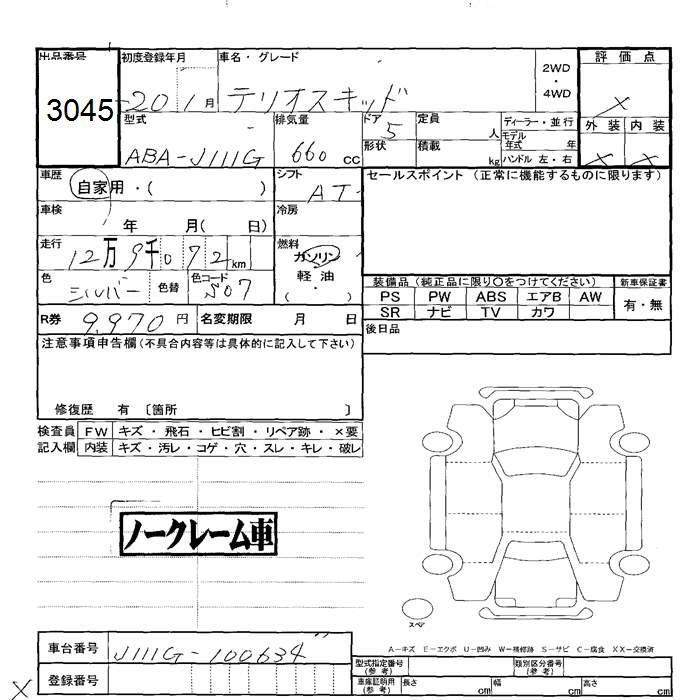 出品番号 初度登録年月 車名・グレード 2WD・4WD 評価点
3045 20 1月 テリオスキッド X
型式 排気量 ドア 定員 ディーラー・並行 外装 内装
ABA-J111G 660cc 5 人 モデル年式 年 X X
形状 積載 kg ハンドル 左・右
車歴 自家用・( ) シフト AT セールスポイント(正常に機能するものに限ります)
車検 年 月( 日) 冷房
走行 12万9千072km 燃料 ガソリン
軽・油
・( )
色 シルバー 色替 色コード S07
装備品(純正品に限り○をつけてください) 新車保証書
PS PW ABS エアB AW 有・無
SR ナビ TV カワ
R券 9,970円 名変期限 月 日 後日品
注意事項申告欄(不具合内容等は具体的に記入して下さい)
修復歴 有 〔箇所 〕
検査員 FW キズ・飛石・ヒビ割・リペア跡・×要
記入欄 内装 キズ・汚レ・コゲ・穴・スレ・キレ・破レ
ノークレーム車
スペア
A－キズ E－エクボ U－凹み W－補修跡 S－サビ C－腐食 XX－交換済
車台番号 J111G-100634
型式指定番号(参考) 類別区分番号(参考)
登録番号
車庫証明用(参考) 長さ cm 幅 cm 高さ cm
X